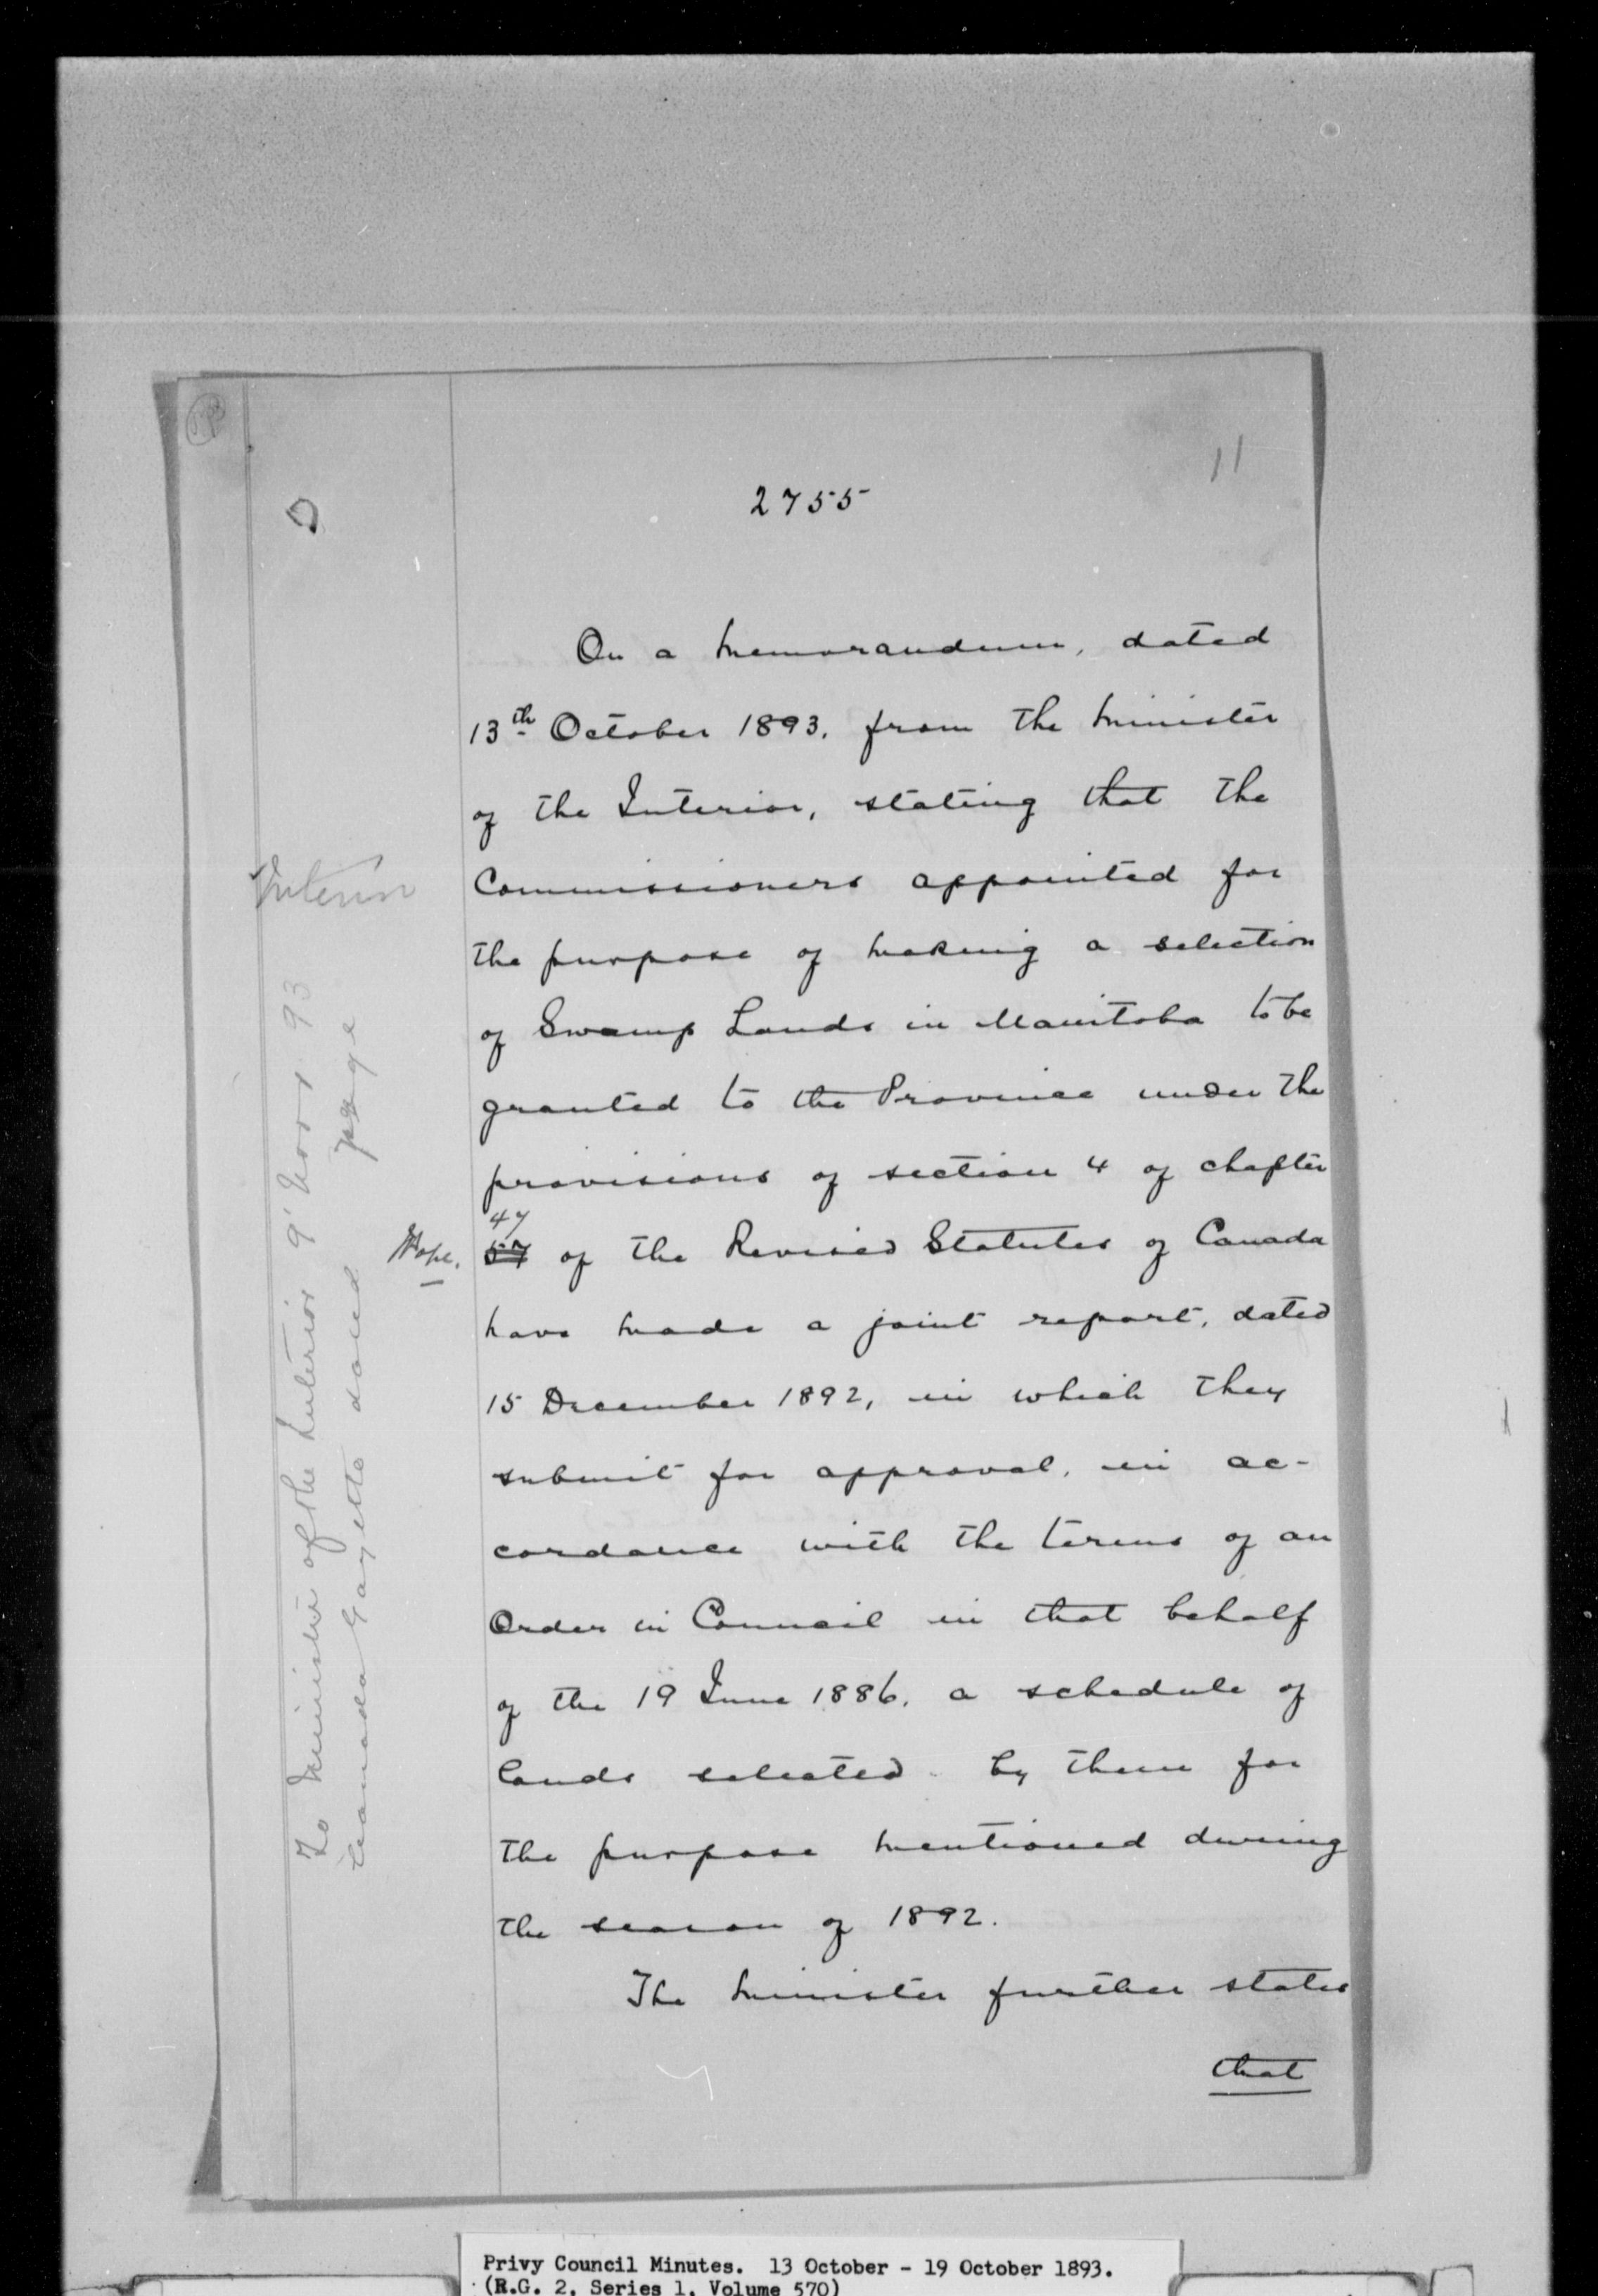 11
2755
On a memorandum, dated
13th October 1893. from the Minister
of the Interior, stating that the
Commissioners appointed for
the purpose of making a selection
of Swamp Lands in Manitoba to be
granted to the Province under the
provisions of section 4 of chapter
47
57 of the Revised Statutes of Canada
have made a joint report, dated
15 December 1892, in which they
submit for approval, in ac-
cordance with the terms of an
Order in Council in that behalf
of the 19 June 1886. a schedule of
lands selected by them for
the purpose mentioned during
the season of 1892.
The Minister further states
that
Interior
To Minister of the Interior 9' Novr 93
Canada Gazette
Privy Council Minutes. 13 October - 19 October 1893.
(R.G. 2, Series 1, Volume 570)